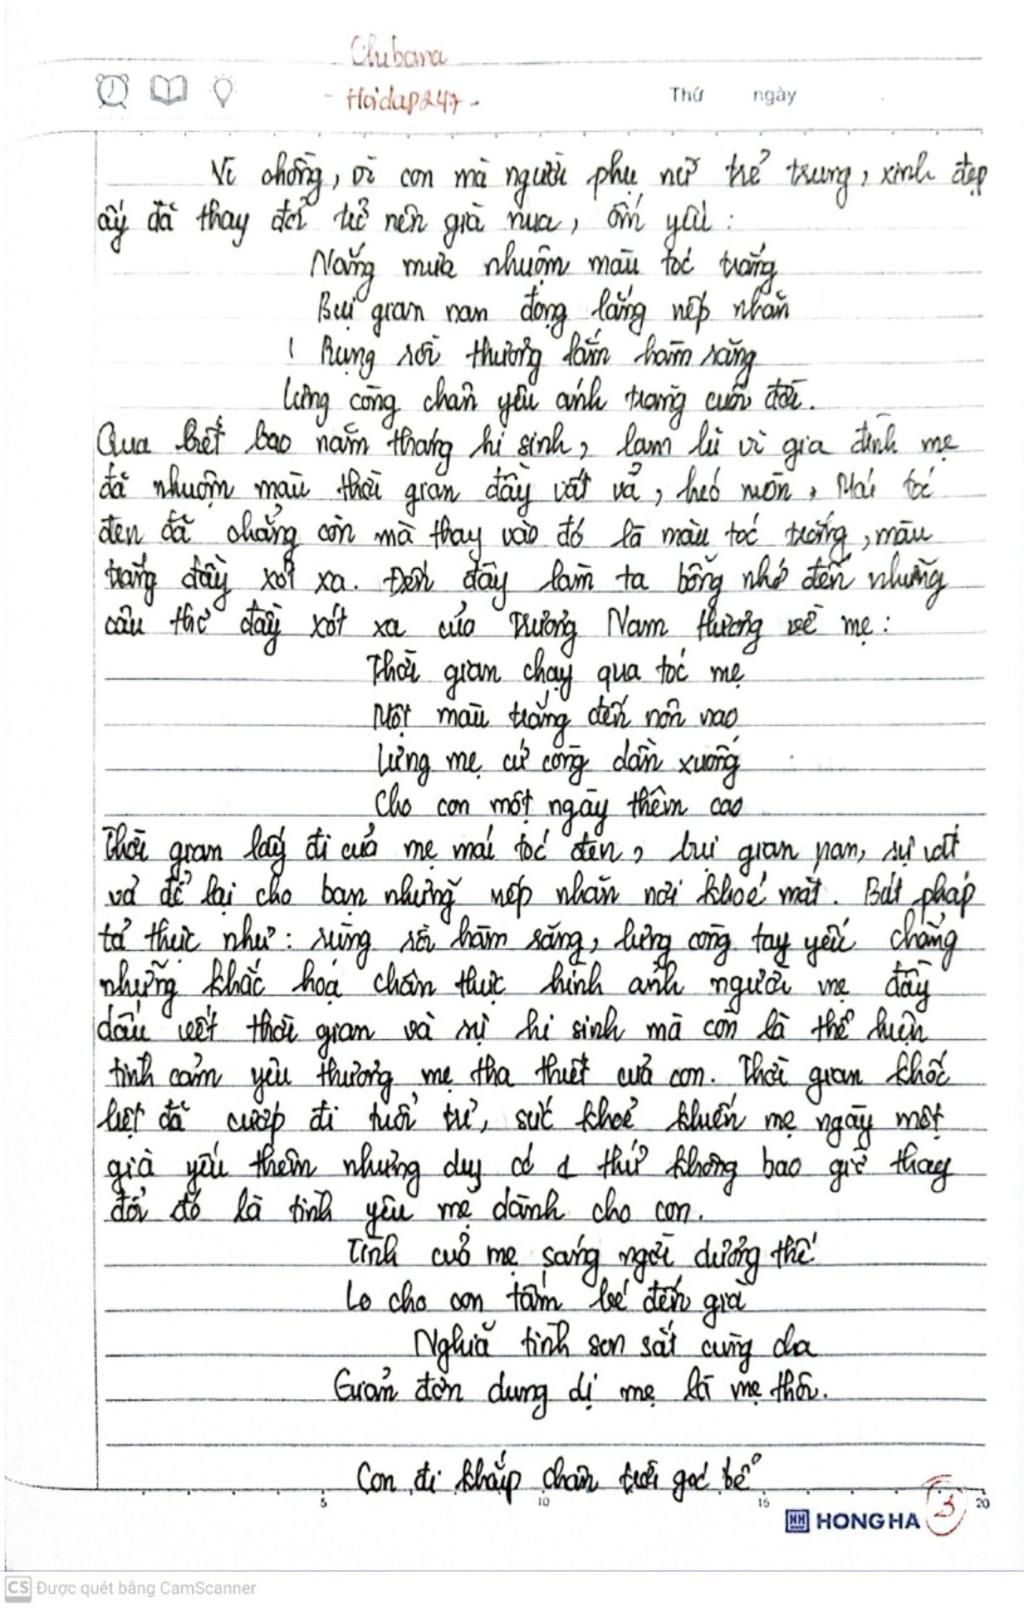 Chubana
- Hoidap247 -
Thứ ngày
Vì chồng, vì con mà người phụ nữ trẻ trung, xinh đẹp
ấy đã thay đổi trở nên già nua, ốm yếu:
Nắng mưa nhuộm màu tóc trắng
Bụi gian nan đọng lắng nếp nhăn
Rụng rời thương lắm hàm răng
Lưng còng chân yếu ánh trăng cuối đời.
Qua biết bao năm tháng hi sinh, lam lũ vì gia đình mẹ
đã nhuộm màu thời gian đầy vất vả, héo mòn. Mái tóc
đen đã chẳng còn mà thay vào đó là màu tóc trắng, màu
trắng đầy xót xa. Đến đây làm ta bỗng nhớ đến những
câu thơ đầy xót xa của Trương Nam Hương về mẹ:
Thời gian chạy qua tóc mẹ
Một màu trắng đến nôn nao
Lưng mẹ cứ còng dần xuống
Cho con một ngày thêm cao
Thời gian lấy đi của mẹ mái tóc đen, bụi gian nan, sự vất
vả để lại cho bạn những nếp nhăn nơi khoé mắt. Bút pháp
tả thực như: rụng rời hàm răng, lưng còng tay yếu chẳng
những khắc hoạ chân thực hình ảnh người mẹ đầy
dấu vết thời gian và sự hi sinh mà còn là thể hiện
tình cảm yêu thương mẹ tha thiết của con. Thời gian khốc
liệt đã cướp đi tuổi trẻ, sức khoẻ khiến mẹ ngày một
già yếu thêm nhưng duy có 1 thứ không bao giờ thay
đổi đó là tình yêu mẹ dành cho con.
Tình của mẹ sáng ngời dương thế
Lo cho con tấm bé đến già
Nghĩa tình son sắt cùng cha
Giản đơn dung dị mẹ là mẹ thôi.
Con đi khắp chân trời góc bể
5 10 15 20
HH HONG HA
3
CS Được quét bằng CamScanner